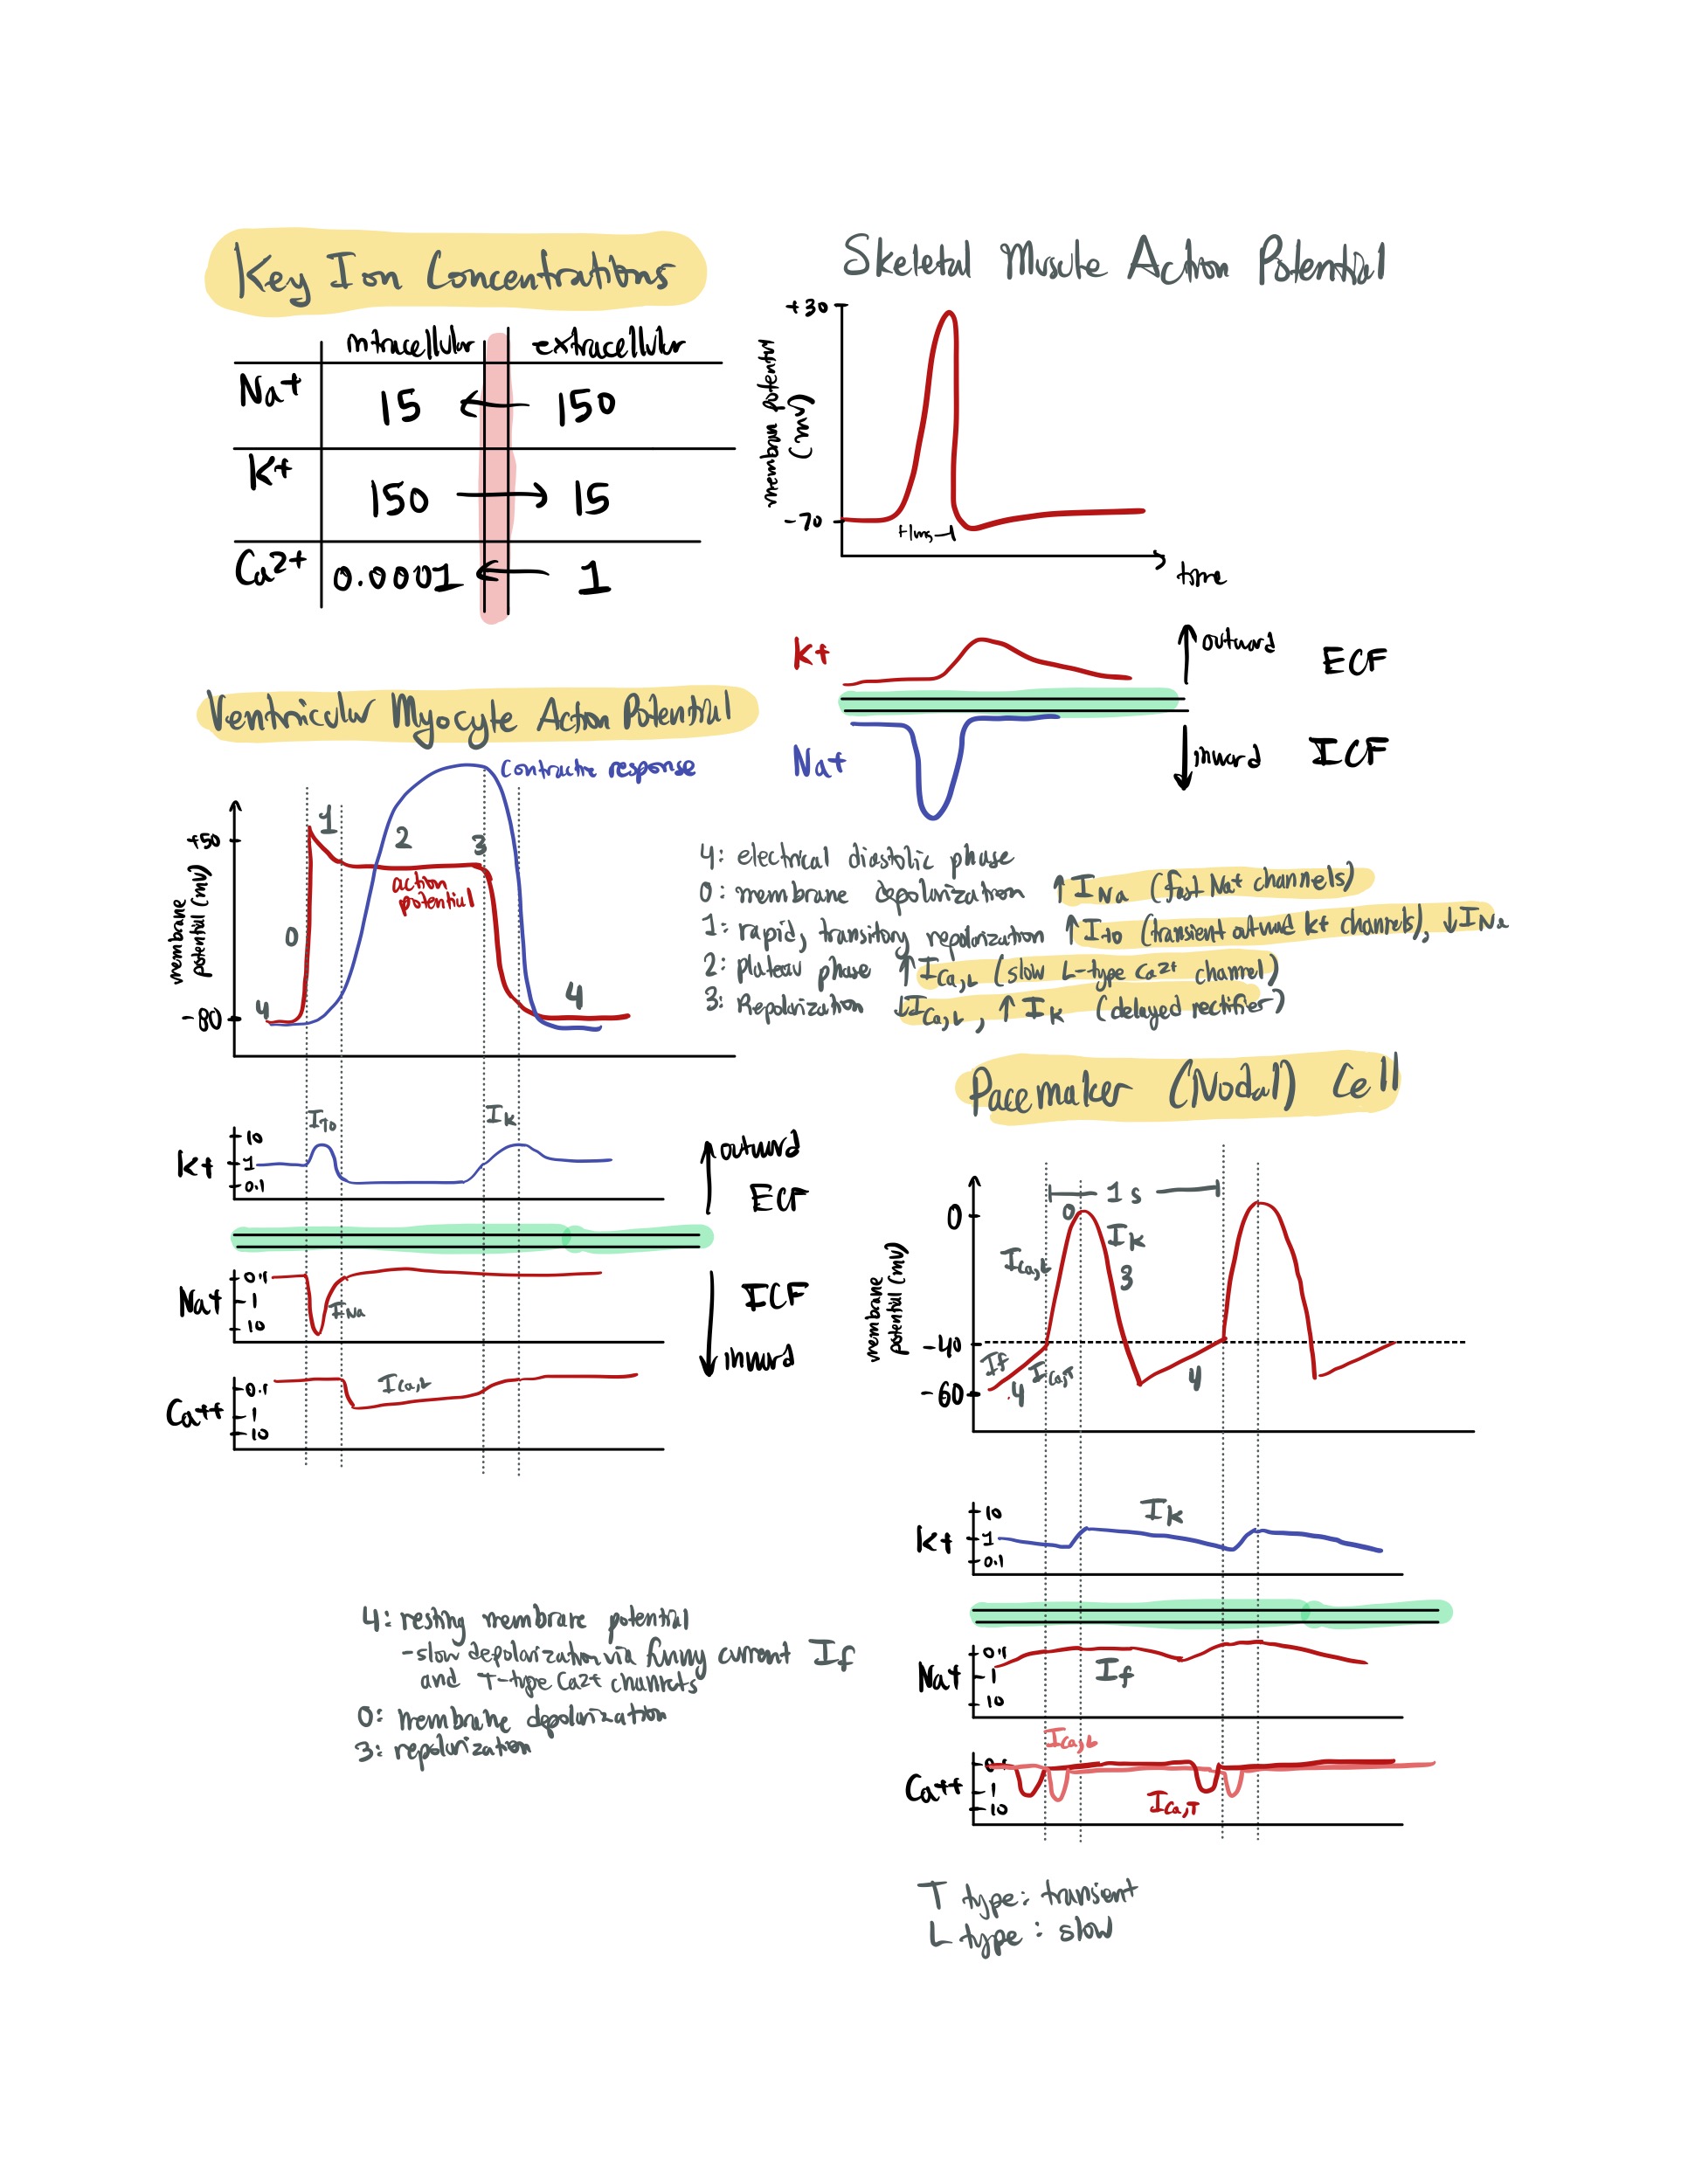 Key Ion Concentrations
intracellular extracellular
Na+ 15 ← 150
K+ 150 → 15
Ca2+ 0.0001 ← 1
Skeletal Muscle Action Potential
+30
membran potential
(mV)
-70
1ms
time
K+
↑ outward ECF
Na+
↓ inward ICF
Ventricular Myocyte Action Potential
contractile response
+50
membrane
potential (mV)
-80
4 0 1 2 3 4
action
potential
4: electrical diastolic phase
0: membrane depolarization ↑INa (fast Na+ channels)
1: rapid, transitory repolarization ↑ITO (transient outward K+ channels), ↓INa
2: plateau phase ↑ICa,L (slow L-type Ca2+ channel)
3: Repolarization ↓ICa,L, ↑IK (delayed rectifier)
ITO IK
K+
10
1
0.1
↑ outward
ECF
Na+
0.1
1
10
INa
ICF
↓ inward
Ca++
0.1
1
10
ICa,L
Pacemaker (Nodal) Cell
1 s
0
membrane
potential (mV)
-40
-60
ICa,L
0
IK
3
If
ICa,T
4
4
K+
10
1
0.1
IK
Na+
0.1
1
10
If
Ca++
0.1
1
10
ICa,L
ICa,T
4: resting membrane potential
-slow depolarization via funny current If
and T-type Ca2+ channels
0: membrane depolarization
3: repolarization
T type: transient
L type: slow